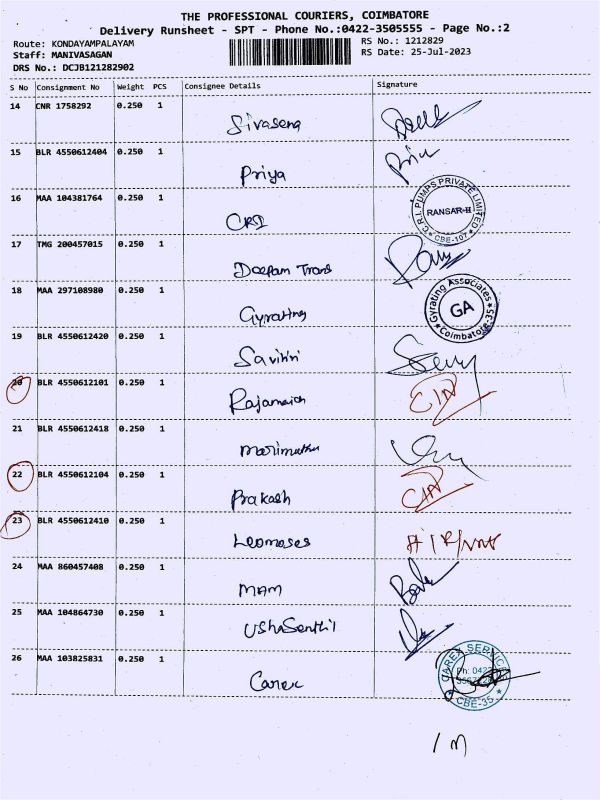 THE PROFESSIONAL COURIERS, COIMBATORE
Delivery Runsheet - SPT - Phone No.:0422-3505555 - Page No.:2
Route: KONDAYAMPALAYAM RS No.: 1212829
Staff: MANIVASAGAN RS Date: 25-Jul-2023
DRS No.: DCJB121282902
S No Consignment No Weight PCS Consignee Details Signature
14 CNR 1758292 0.250 1
Sivasena
15 BLR 4550612404 0.250 1
Priya
16 MAA 104381764 0.250 1
CRI
C.R.I. PUMPS PRIVATE LIMITED
RANSAR-II
CBE-107
17 TMG 200457015 0.250 1
Deepam Trans
18 MAA 297108980 0.250 1
Gyrating
Gyrating Associates
GA
Coimbatore-35
19 BLR 4550612420 0.250 1
Savithri
20 BLR 4550612101 0.250 1
21 BLR 4550612418 0.250 1
Marimuthu
22 BLR 4550612104 0.250 1
Prakash
23 BLR 4550612410 0.250 1
Leomoses
24 MAA 860457408 0.250 1
MAM
25 MAA 104864730 0.250 1
UshaSenthil
26 MAA 103825831 0.250 1
Carex
CAREX SERVICE
Ph: 0422
CBE-35